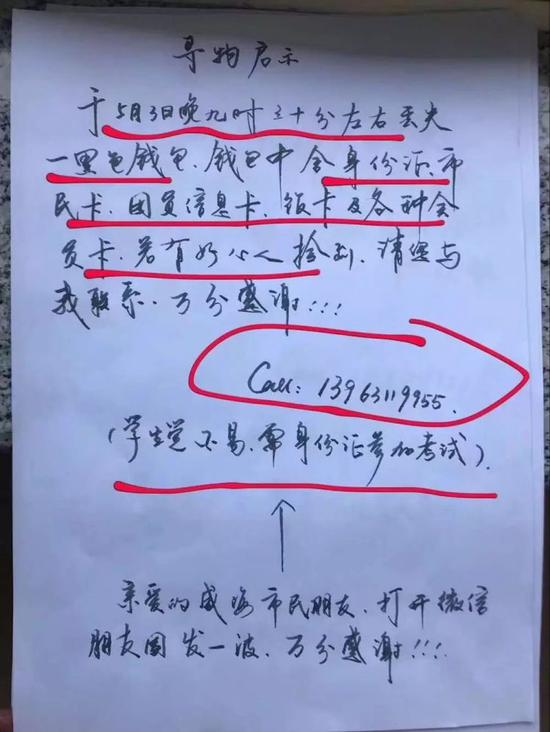 寻物启示
于5月3日晚九时三十分左右丢失
一黑色钱包、钱包中含身份证、市
民卡、团员信息卡、银卡及各种会
员卡、若有好心人捡到、请您与
我联系、万分感谢!!!
Call: 13963119955.
(学生党不易、需身份证参加考试).
亲爱的威海市民朋友、打开微信
朋友圈发一波、万分感谢!!!